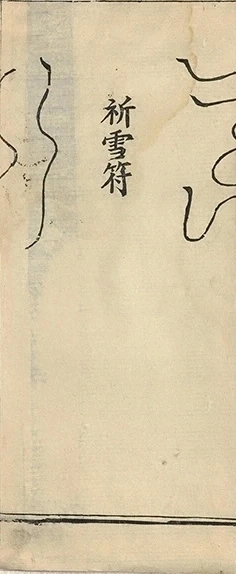 祈雪符